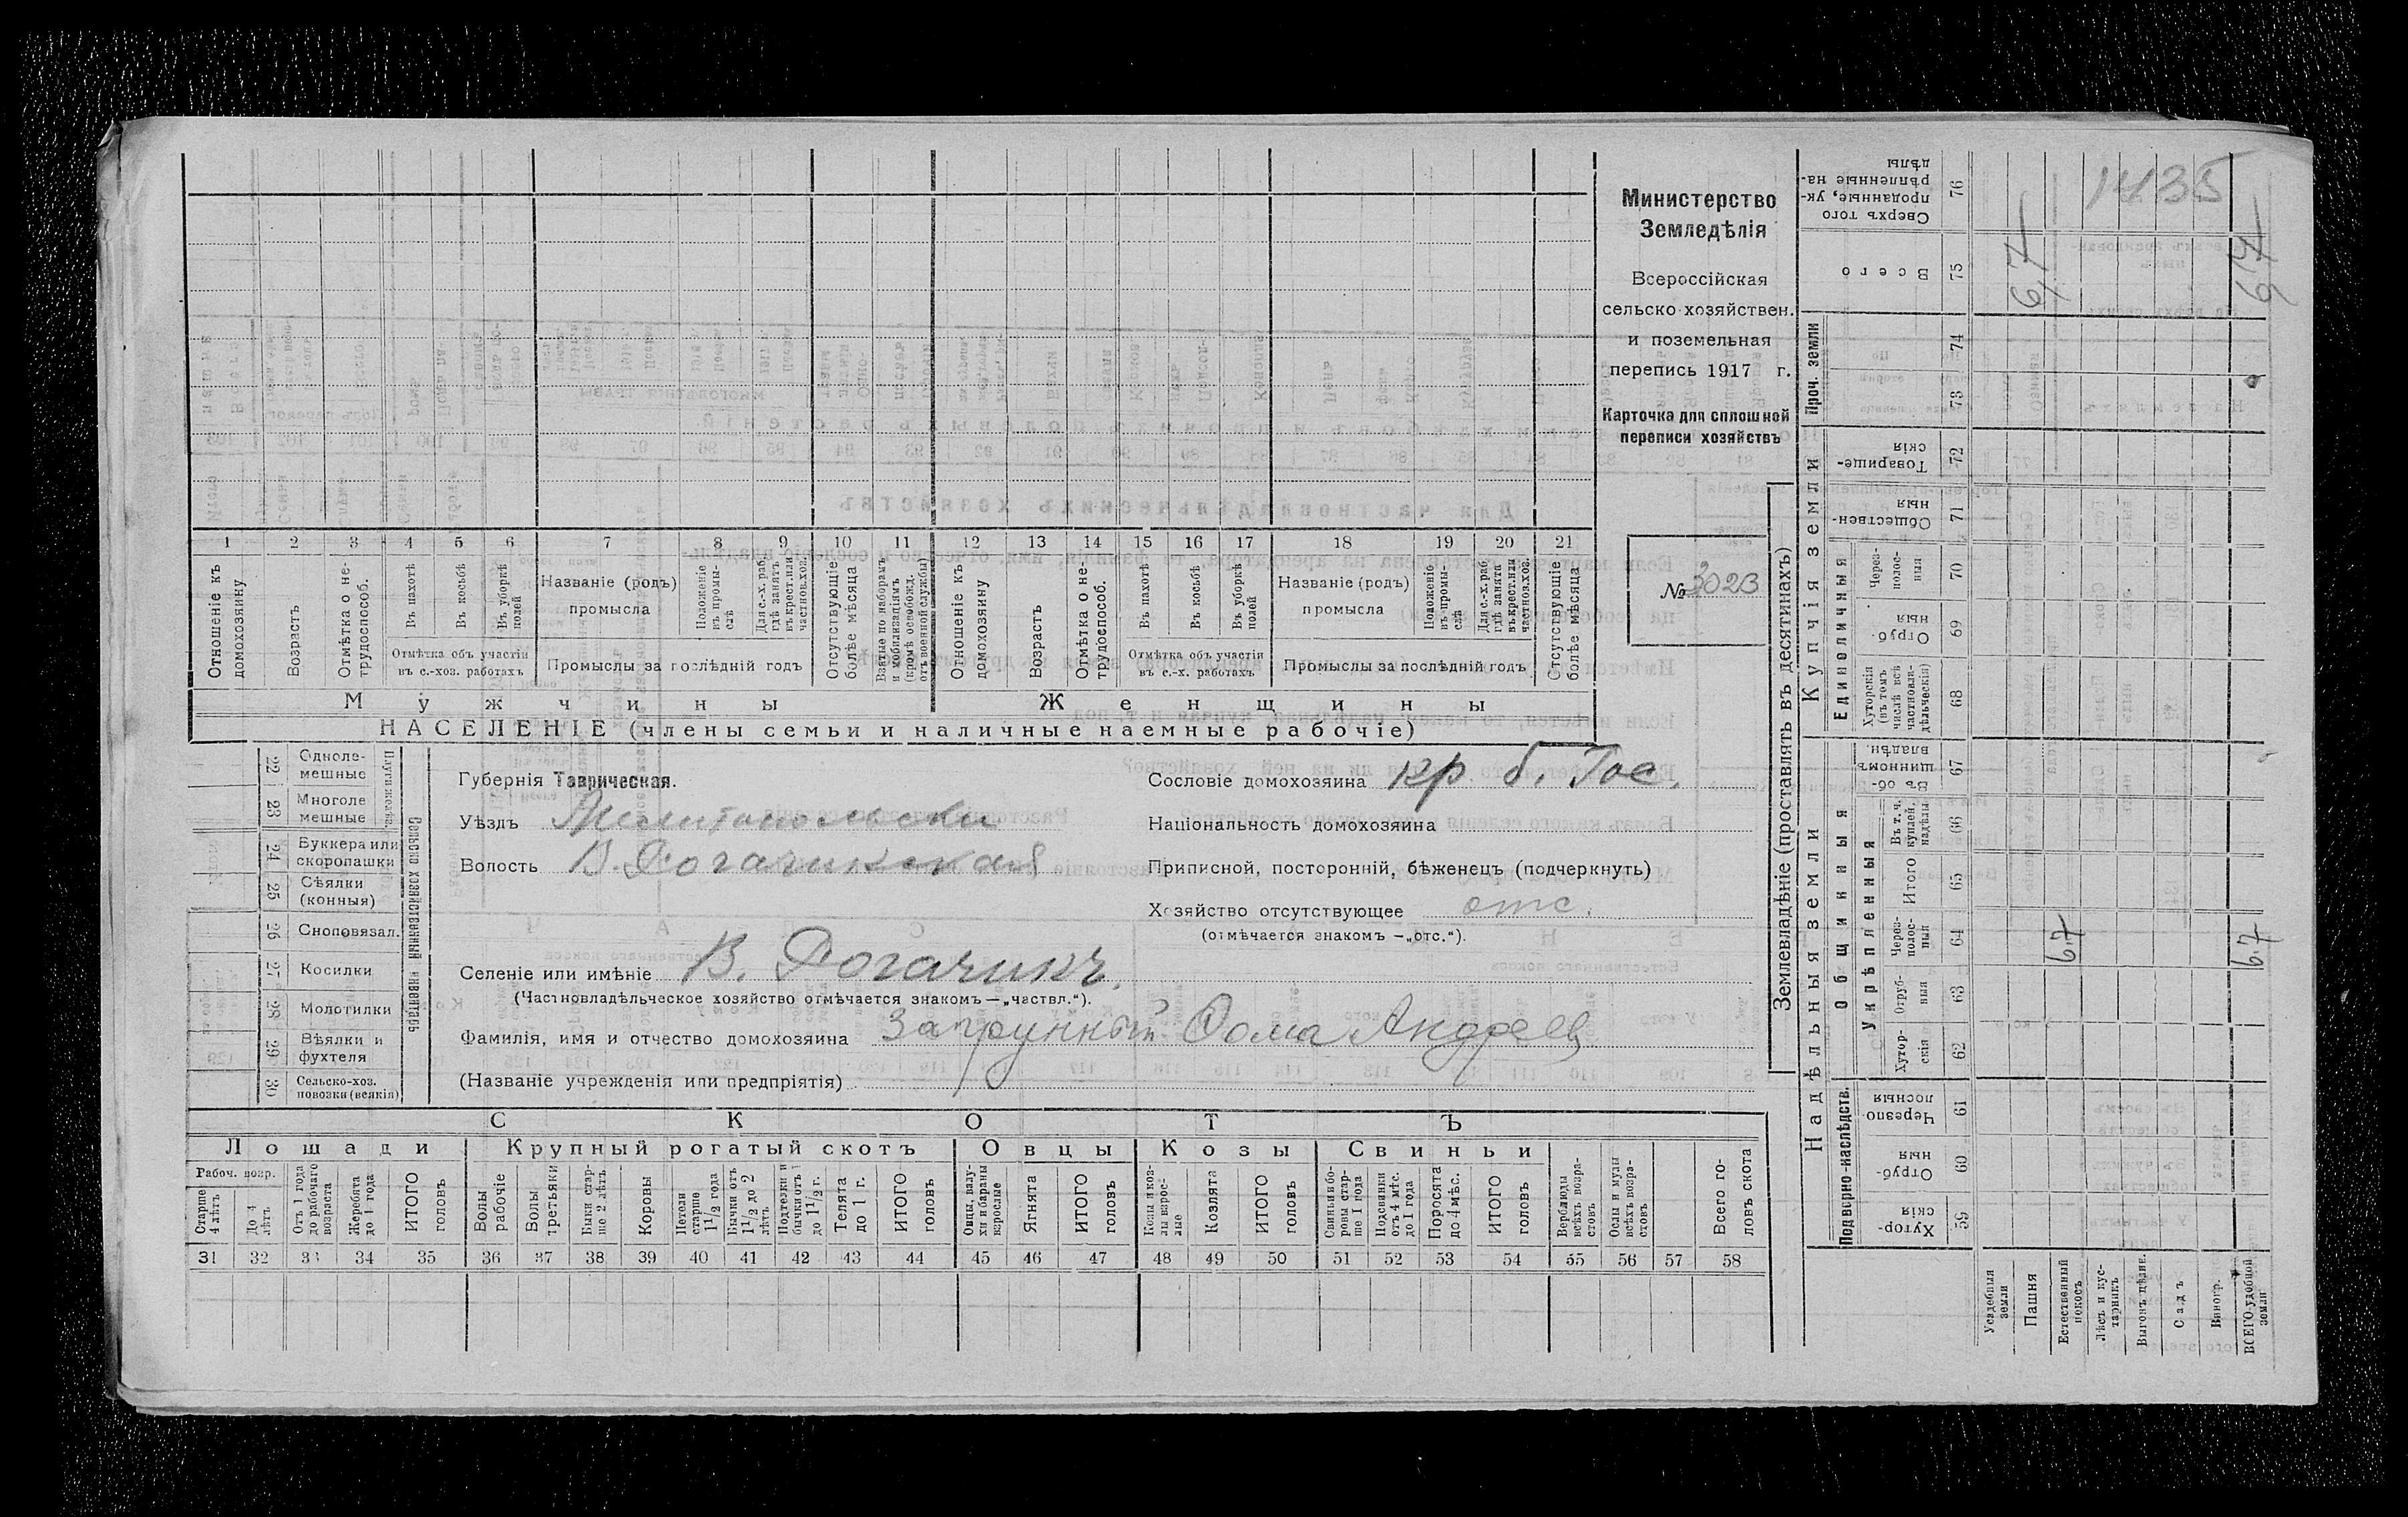 Министерство
Земледѣлія
Всероссійская
сельско-хозяйствен.
и поземельная
перепись 1917 г.
Карточка для сплошной
переписи хозяйствъ
№ 3023
1435
1 2 3 4 5 6 7 8 9 10 11 12 13 14 15 16 17 18 19 20 21
Отношеніе къ домохозяину
Возрастъ
Отмѣтка о не-трудоспособ.
Въ пахотѣ
Въ косьбѣ
Въ уборкѣ полей
Отмѣтка объ участіи въ с.-хоз. работахъ
Названіе (родъ) промысла
Положеніе въ промы-слѣ
Для с.-х. раб. гдѣ занятъ въ крест. или частнов. хоз.
Промыслы за послѣдній годъ
Отсутствующіе болѣе мѣсяца
Взятые по наборамъ и мобилизаціямъ (кромѣ освобожд. отъ военной службы)
Отношеніе къ домохозяину
Возрастъ
Отмѣтка о не-трудоспособ.
Въ пахотѣ
Въ косьбѣ
Въ уборкѣ полей
Отмѣтка объ участіи въ с.-х. работахъ
Названіе (родъ) промысла
Положеніе въ промы-слѣ
Для с.-х. раб. гдѣ занята въ крест. или частнов. хоз.
Промыслы за послѣдній годъ
Отсутствующіе болѣе мѣсяца
Мужчины Женщины
НАСЕЛЕНІЕ (члены семьи и наличные наемные рабочіе)
Сельско хозяйственный инвентарь
22 Одноле-мешные
23 Многоле мешные
24 Буккера или скоропашки
25 Сѣялки (конныя)
26 Сноповязал.
27 Косилки
28 Молотилки
29 Вѣялки и фухтеля
30 Сельско-хоз. повозки (всякія)
Губернія Таврическая.
Уѣздъ Мелитопольски
Волость В. Рогачикская
Селеніе или имѣніе В. Рогачикъ.
(Частновладѣльческое хозяйство отмѣчается знакомъ—„частвл.“).
Фамилія, имя и отчество домохозяина Загрунный Фома Андреев
(Названіе учрежденія или предпріятія)
Сословіе домохозяина кр. б. Гос.
Національность домохозяина
Приписной, посторонній, бѣженецъ (подчеркнуть)
Хозяйство отсутствующее отс.
(отмѣчается знакомъ —„отс.“).
СКОТЪ
Лошади Крупный рогатый скотъ Овцы Козы Свиньи
Рабоч. возр.
Старше 4 лѣтъ
До 4 лѣтъ
Отъ 1 года до рабочаго возраста
Жеребята до 1 года
ИТОГО головъ
Волы рабочіе
Волы третьяки
Быки стар-ше 2 лѣтъ
Коровы
Нетели старше 1 1/2 года
Бычки отъ 1 1/2 до 2 лѣтъ
Подтелки и бычки отъ 1 до 1 1/2 г.
Телята до 1 г.
ИТОГО головъ
Овцы, валу-хи и бараны взрослые
Ягнята
ИТОГО головъ
Козы и коз-лы взрос-лые
Козлята
ИТОГО головъ
Свиньи и бо-ровы стар-ше 1 года
Подсвинки отъ 4 мѣс. до 1 года
Поросята до 4 мѣс.
ИТОГО головъ
Верблюды всѣхъ возра-стовъ
Ослы и мулы всѣхъ возра-стовъ
Всего го-ловъ скота
31 32 33 34 35 36 37 38 39 40 41 42 43 44 45 46 47 48 49 50 51 52 53 54 55 56 57 58
Землевладѣніе (проставлять въ десятинахъ)
Надѣльныя земли Купчія земли Проч. земли
Подворно-наслѣдств. Общинныя Единоличныя
Укрѣпленныя
59 Хутор-скія
60 Отруб-ныя
61 Черезпо-лосныя
62 Хутор-скія
63 Отруб-ныя
64 Через-полос-ныя
65 Итого
66 Въ т. ч. куплен. надѣлы
67 Въ об-щинномъ владѣн.
68 Хуторскія (въ томъ числѣ всѣ частновла-дѣльческія)
69 Отруб-ныя
70 Через-полос-ныя
71 Обществен-ныя
72 Товарище-скія
73
74
75 Всего
76 Сверхъ того проданные, ук-рѣпленные на-дѣлы
Усадебныя земли
Пашня
Естественный покосъ
Лѣсъ и кус-тарникъ
Выгонъ цѣлие.
Садъ
Виногр.
ВСЕГО удобной земли
6,7
67
67
67